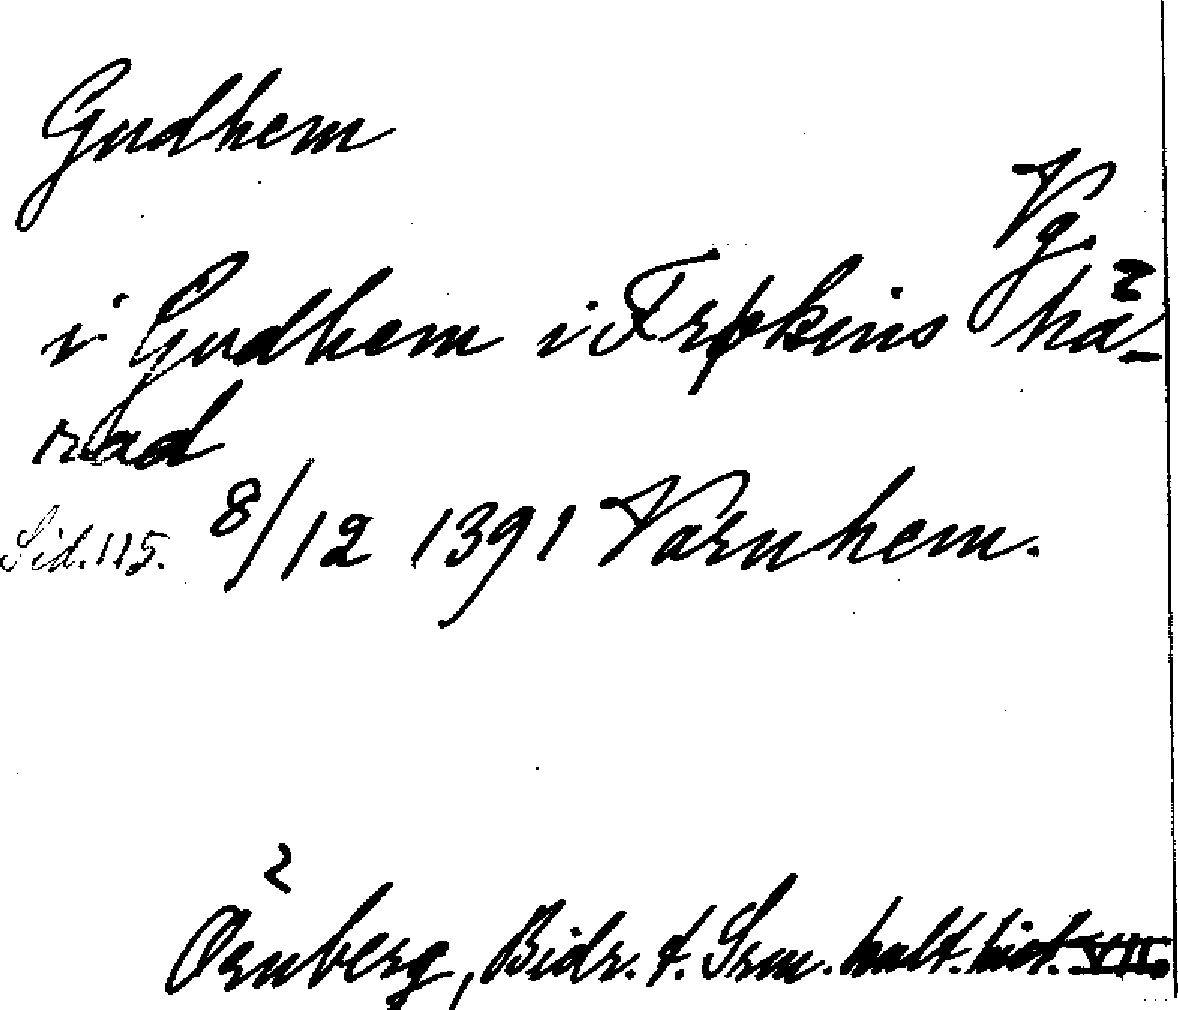 Gudhem
Vg
i Gudhem i Frøkins hä-
rad
Sid. 115. 8/12 1391 Varnhem.
Örnberg, Bidr. t. Srm. kult. hist. VII.